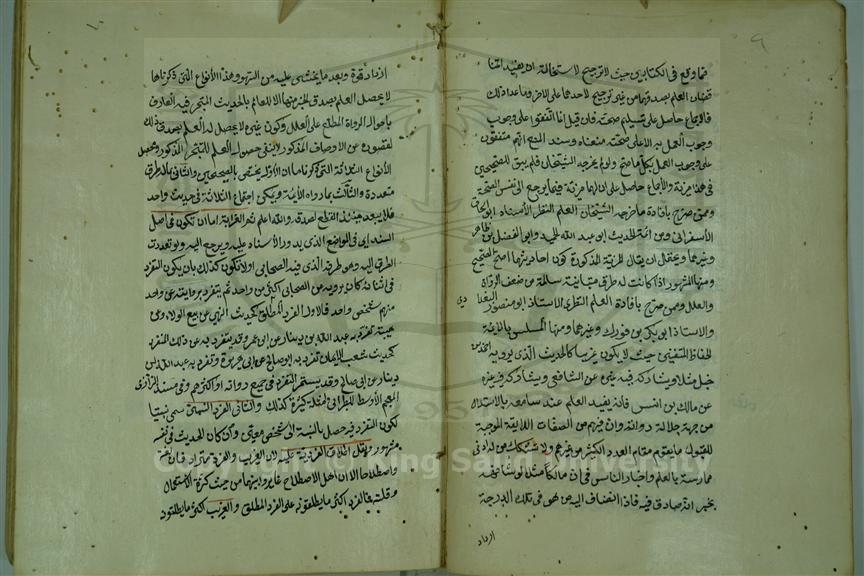 مما وقع في الكتابين حيث لا ترجيح لاستحالة ان يفيد المتنا
قضان العلم بصدقهما من غير ترجيح لاحدهما على الاخر وما عدا ذلك
فالاجماع حاصل على تسليم صحته فان قيل انما اتفقوا على وجوب
وجوب العمل به لا على صحته منعناه وسند المنع انهم متفقون
على وجوب العمل بكل ما صح ولو لم يخرجه الشيخان فلم يبق للصحيحين
في هذا مزية والاجماع حاصل على ان لهما مزية فيما يرجع الى نفس الصحة
وممن صرح بافادة ما خرجه الشيخان العلم النظري الاستاذ ابو اسحاق
الاسفرائني ومن ائمة الحديث ابو عبد الله الحميدي وابو الفضل بن طاهر
وغيرهما ويحتمل ان يقال المزية المذكورة كون احاديثهما اصح الصحيح
ومنها المشهور اذا كانت له طرق متباينة سالمة من ضعف الرواة
والعلل وممن صرح بافادة العلم النظري الاستاذ ابو منصور البغدا
دي
والاستاذ ابو بكر بن فورك وغيرهما ومنها المسلسل بالائمة
الحفاظ المتقنين حيث لا يكون غريبا كالحديث الذي يرويه احمد بن
حنبل مثلا ويشاركه فيه غيره عن الشافعي ويشاركه فيه غيره
عن مالك بن انس فانه يفيد العلم عند سامعه بالاستدلال
من جهة جلالة رواته وان فيهم من الصفات اللائقة الموجبة
للقبول ما يقوم مقام العدد الكثير من غيرهم ولا يتشكك من له ادنى
ممارسة بالعلم واخبار الناس في ان مالكا مثلا لو شافهه
بخبر انه صادق فيه فاذا انضاف اليه من هو في تلك الدرجة
ازداد
ازداد قوة وبعد ما يخشى عليه من السهو وهذه الانواع التي ذكرناها
لا يحصل العلم بصدق الخبر منها الا للعالم بالحديث المتبحر فيه العارف
باحوال الرواة المطلع على العلل وكون غيره لا يحصل له العلم بصدق ذلك
لقصوره عن الاوصاف المذكورة لا ينفي حصول العلم للمتبحر المذكور ومحصل
الانواع الثلاثة التي ذكرناها ان الاول يختص بالصحيحين والثاني بما له طرق
متعددة والثالث بما رواه الائمة ويمكن اجتماع الثلاثة في حديث واحد
فلا يبعد حينئذ القطع بصدقه والله اعلم ثم الغرابة اما ان تكون في اصل
السند اي في الموضع الذي يدور الاسناد عليه ويرجع اليه ولو تعددت
الطرق اليه وهو طرفه الذي فيه الصحابي او لا تكون كذلك بان يكون التفرد
في اثنائه كان يرويه عن الصحابي اكثر من واحد ثم يتفرد بروايته عن واحد
منهم شخص واحد فالاول الفرد المطلق كحديث النهي عن بيع الولاء وعن
هبته تفرد به عبد الله بن دينار عن ابن عمر وقد يتفرد به عن ذلك المتفرد
كحديث شعب الايمان تفرد به ابو صالح عن ابي هريرة وتفرد به عبد الله بن
دينار عن ابي صالح وقد يستمر التفرد في جميع رواته او اكثرهم وفي مسند البزار و
المعجم الاوسط للطبراني امثلة كثيرة لذلك والثاني الفرد النسبي سمي نسبيا
لكون التفرد فيه حصل بالنسبة الى شخص معين وان كان الحديث في نفسه
مشهورا ويقل اطلاق الفردية عليه لان الغريب والفرد مترادفان لغة
واصطلاحا الا ان اهل الاصطلاح غايروا بينهما من حيث كثرة الاستعمال
وقلته فالفرد اكثر ما يطلقونه على الفرد المطلق والغريب اكثر ما يطلقونه
Copyright © King Saud University